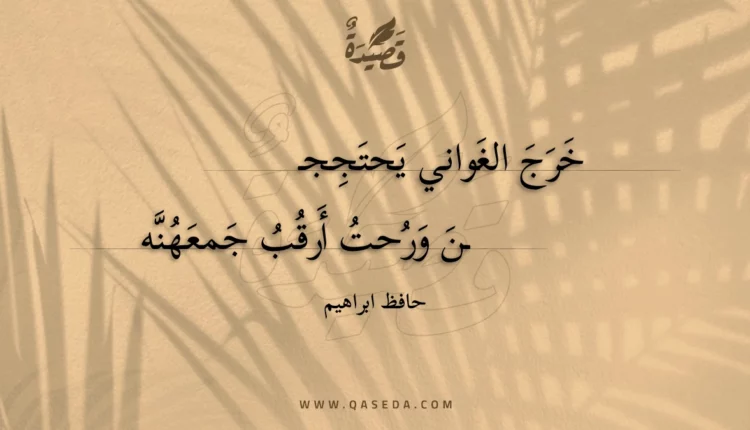 قَصِيْدَةٌ
خَرَجَ الغَواني يَحتَجِجـ
ـنَ وَرُحتُ أَرقُبُ جَمعَهُنَّه
حافظ ابراهيم
WWW.QASEDA.COM